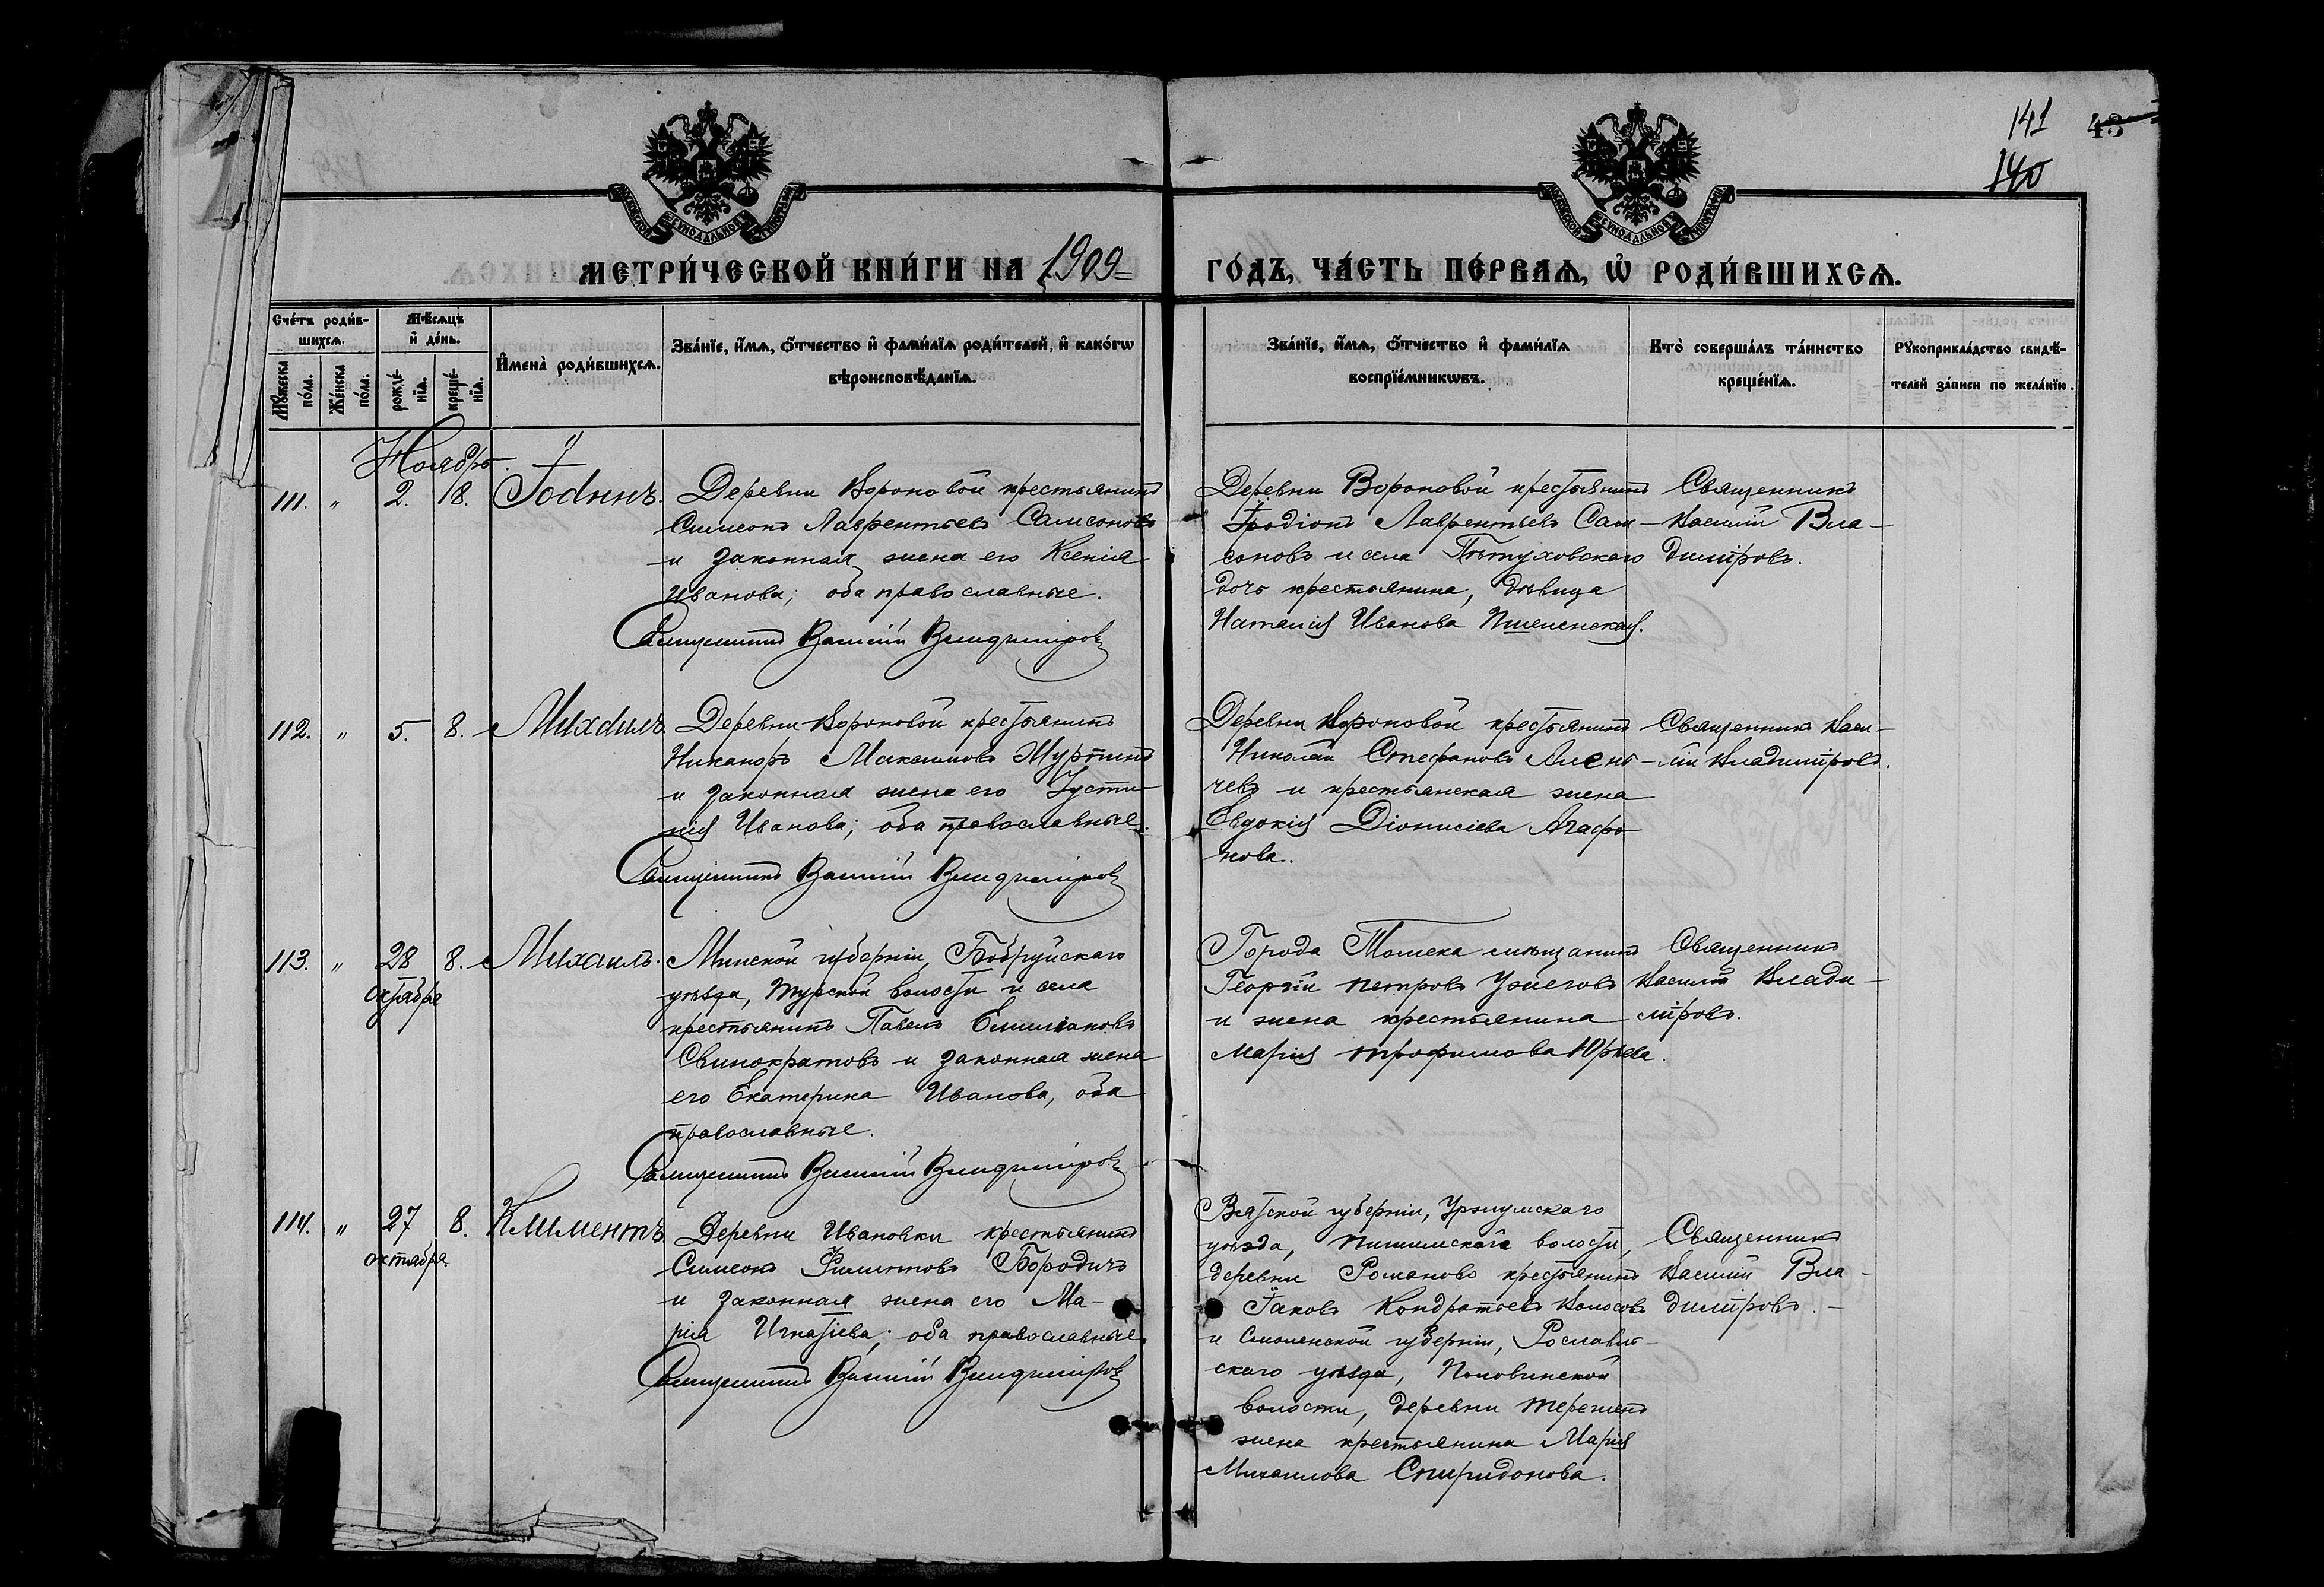 141
48
140
МОСКОВСКОЙ СѴНОДАЛЬНОЙ ТИПОГРАФІИ
МОСКОВСКОЙ СѴНОДАЛЬНОЙ ТИПОГРАФІИ
МЕТРИ́ЧЕСКОЙ КНИ́ГИ НА 1909
ГО́ДЪ, ЧА́СТЬ ПЕ́РВАѦ, Ѽ РОДИ́ВШИХСѦ.
Сче́тъ роди́в-
шихсѧ.
Мꙋ́жеска
по́ла.
Же́нска
по́ла.
Мѣ́сѧцъ
и҆ де́нь.
рожде́-
нїѧ.
креще́-
нїѧ.
И҆мена̀ роди́вшихсѧ.
Зва́нїе, и҆́мѧ, ѻ҆́тчество и҆ фами́лїѧ роди́телей, и҆ како́гѡ
вѣроисповѣ́данїѧ.
Зва́нїе, и҆́мѧ, ѻ҆́тчество и҆ фами́лїѧ
воспрїе́мникѡвъ.
Кто̀ соверша́лъ та́инство
креще́нїѧ.
Рꙋкоприкла́дство свидѣ́-
телей за́писи по жела́нїю.
Ноябрь.
111. " 2. 8. Іоаннъ.
Деревни Вороновой крестьянинъ
Симеонъ Лаврентьевъ Самсоновъ
и законная жена его Ксенія
Иванова; оба православные.
Священникъ Василій Владиміровъ
Деревни Вороновой крестьянинъ
Иродіонъ Лаврентьевъ Сам-
соновъ и села Пѣтуховскаго
дочь крестьянина, дѣвица
Наталія Иванова Пшеленская.
Священникъ
Василій Вла-
диміровъ.
112. " 5. 8. Михаилъ.
Деревни Вороновой крестьянинъ
Никаноръ Максимовъ Муртинъ
и законная жена его Іусти-
нія Иванова; оба православные.
Священникъ Василій Владиміровъ
Деревни Вороновой крестьянинъ
Николай Стефановъ Алень-
чевъ и крестьянская жена
Евдокія Діонисіева Агафо-
нова.
Священникъ Васи-
лій Владиміровъ.
113. " 28 8. Михаилъ.
октября
Минской губерніи, Бобруйскаго
уѣзда, Турской волости и села
крестьянинъ Павелъ Емиліановъ
Свинократовъ и законная жена
его Екатерина Иванова, оба
православные.
Священникъ Василій Владиміровъ
Города Томска мѣщанинъ
Георгій Петровъ Ужеговъ
и жена крестьянина
Марія Трофимова Юрьева.
Священникъ
Василій Влади-
міровъ.
114. " 27 8. Климентъ
октября.
Деревни Ивановки крестьянинъ
Симеонъ Филипповъ Бородичъ
и законная жена его Ма-
рія Игнатіева; оба православные
Священникъ Василій Владиміровъ
Вятской губерніи, Уржумскаго
уѣзда, волости,
деревни Романово крестьянинъ
Іаковъ Кондратьевъ Колосовъ
и Смоленской губерніи, Рославль-
скаго уѣзда,
волости, деревни
жена крестьянина Марія
Михаилова Спиридонова.
Священникъ
Василій Вла-
диміровъ.